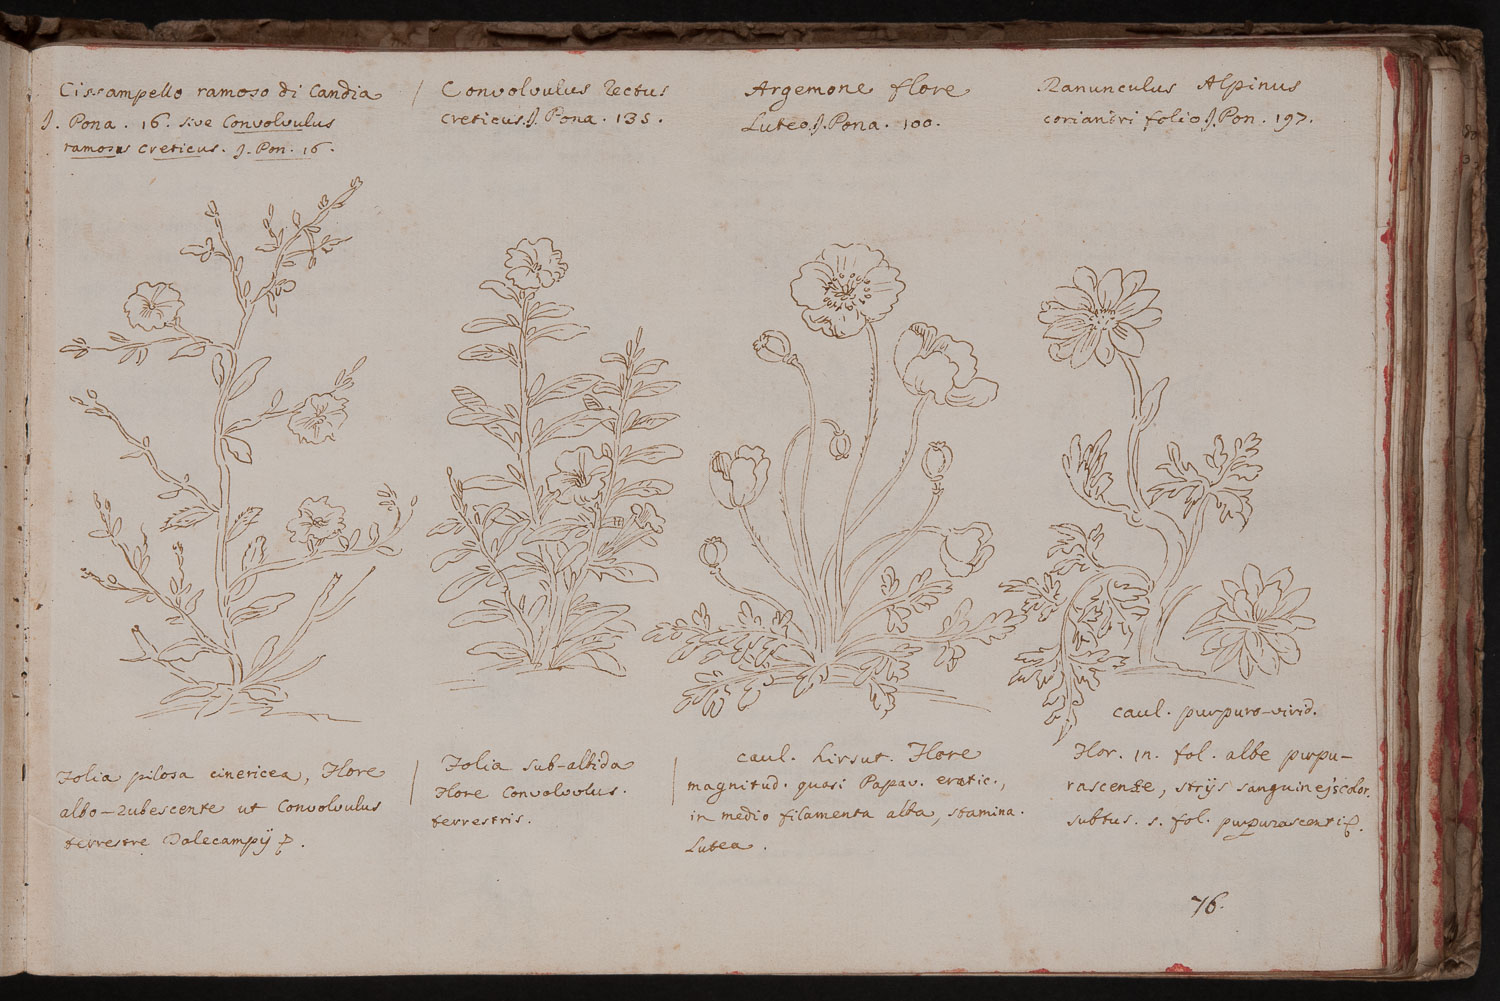 Cissampello ramoso di Candia
J. Pona. 16. sive Convolvulus
ramosus Creticus. J. Pon. 16.
Convolvulus Rectus
Creticus. J. Pona. 135.
Argemone flore
Luteo, J. Pona. 100.
Ranunculus Alpinus
coriandri folio J. Pon. 197.
Folia pilosa cinericea, Flore
albo-rubescente ut Convolvulus
terrestre Dalecampÿ
Folia sub-albida
Flore Convolvolus.
terrestris.
caul. hirsut. Flore
magnitud. quasi Papav. eratic.,
in medio filamenta alba, stamina.
Lutea.
caul. purpuro-virid.
Flor. in. fol. albe purpu-
rascente, strijs sanguinejs color.
subtus. s. fol. purpurascenti
76.